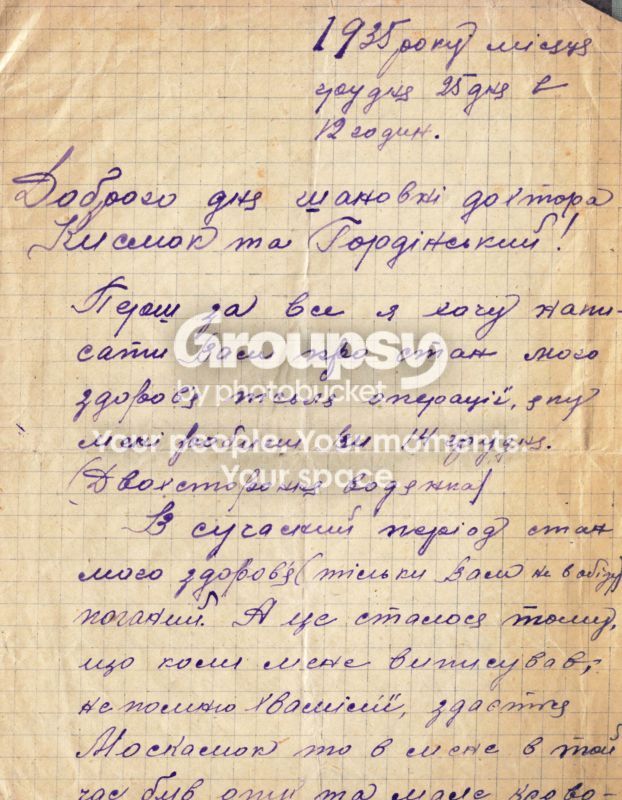 1935 року місяця
грудня 25 дня в
12 годин.
Доброго дня шановні доктора
Кисмок та Гордінський!
Перш за все я хочу напи-
сати Вам про стан мого
здоров'я після операції, яку
мені зробили Ви грудня.
(Двохстороння водянка)
В сучасний період стан
мого здоров'я (тільки Вам не в обіду)
поганий. А це сталося тому,
що коли мене виписував,
не помню хвамілії, здається
Москамок то в мене в той
час був отік та мале крово-
Groupsy
by photobucket
Your people. Your moments.
Your space.